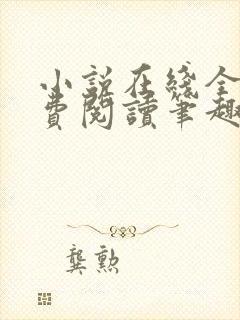 小說在綫全
費閱讀筆趣
龔勲